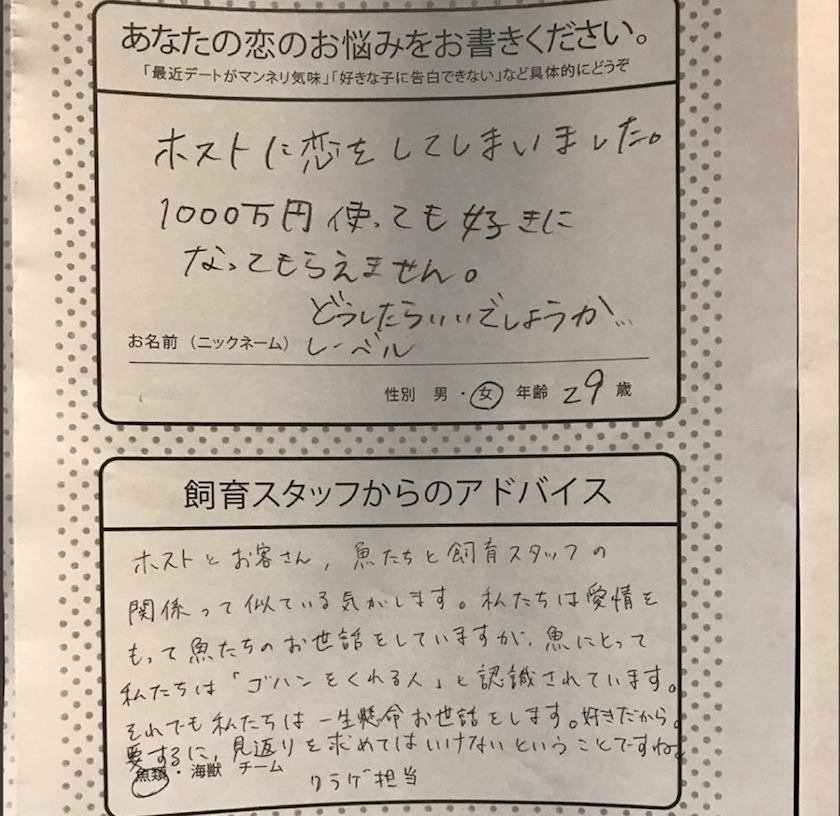 あなたの恋のお悩みをお書きください。
「最近デートがマンネリ気味」「好きな子に告白できない」など具体的にどうぞ
ホストに恋をしてしまいました。
1000万円使っても好きに
なってもらえません。
どうしたらいいでしょうか…
お名前（ニックネーム） レーベル
性別 男・女 年齢 29 歳
飼育スタッフからのアドバイス
ホストとお客さん, 魚たちと飼育スタッフの
関係って似ている気がします。私たちは愛情を
もって魚たちのお世話をしていますが、魚にとって
私たちは「ゴハンをくれる人」と認識されています。
それでも私たちは一生懸命お世話をします。好きだから。
要するに, 見返りを求めてはいけないということですね。
魚類・海獣 チーム
クラゲ担当